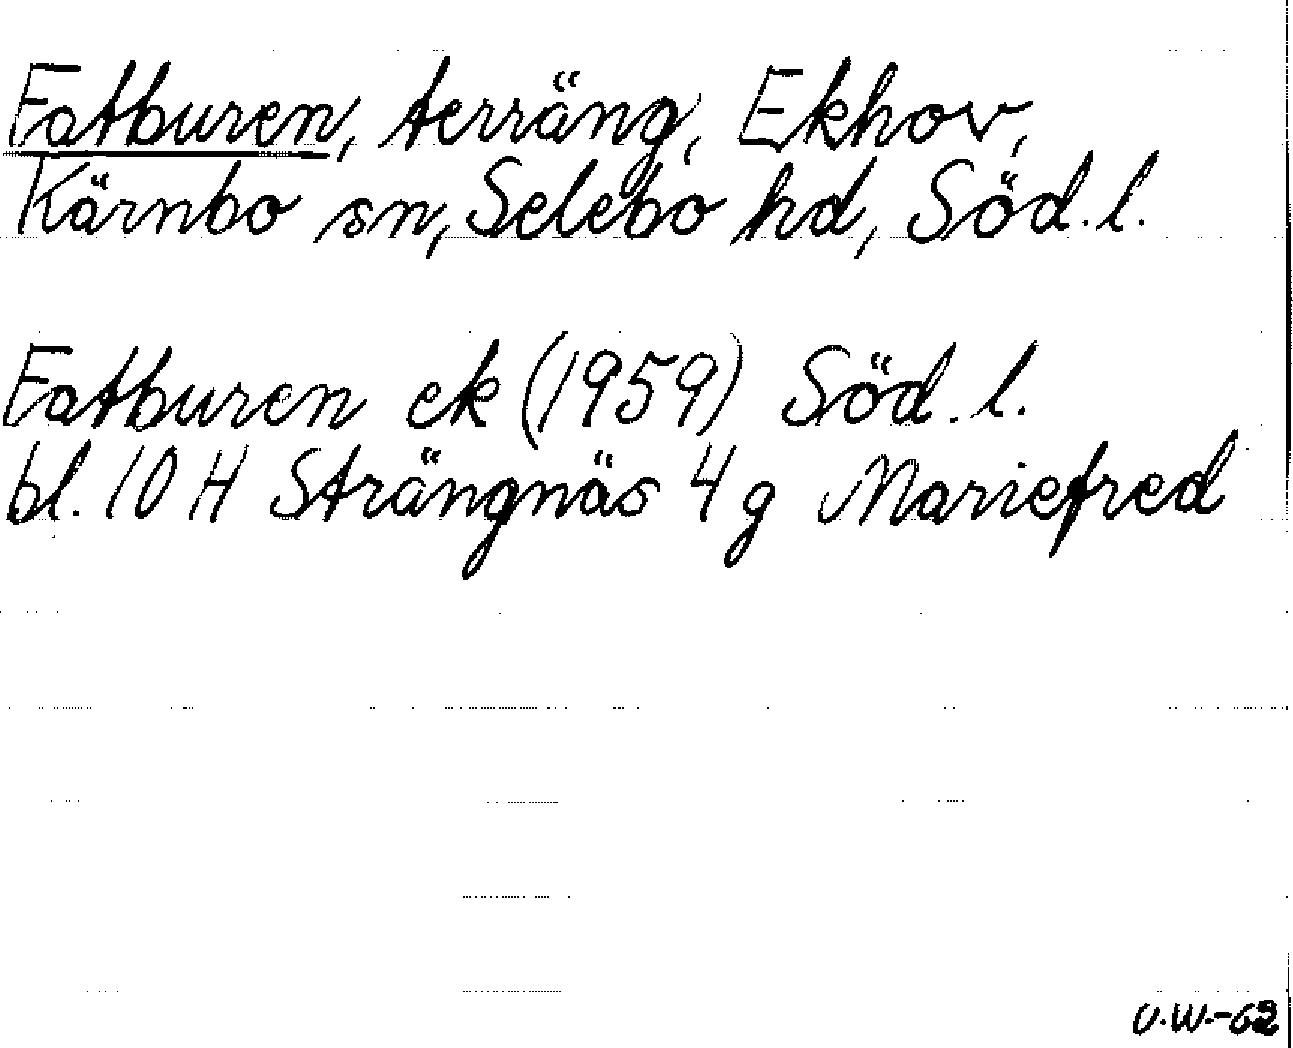 Fatburen, terräng, Ekhov,
Kärnbo sn, Selebo hd, Söd.l.
Fatburen ek (1959) Söd.l.
bl. 10 H Strängnäs 4 g Mariefred
U.W.-62